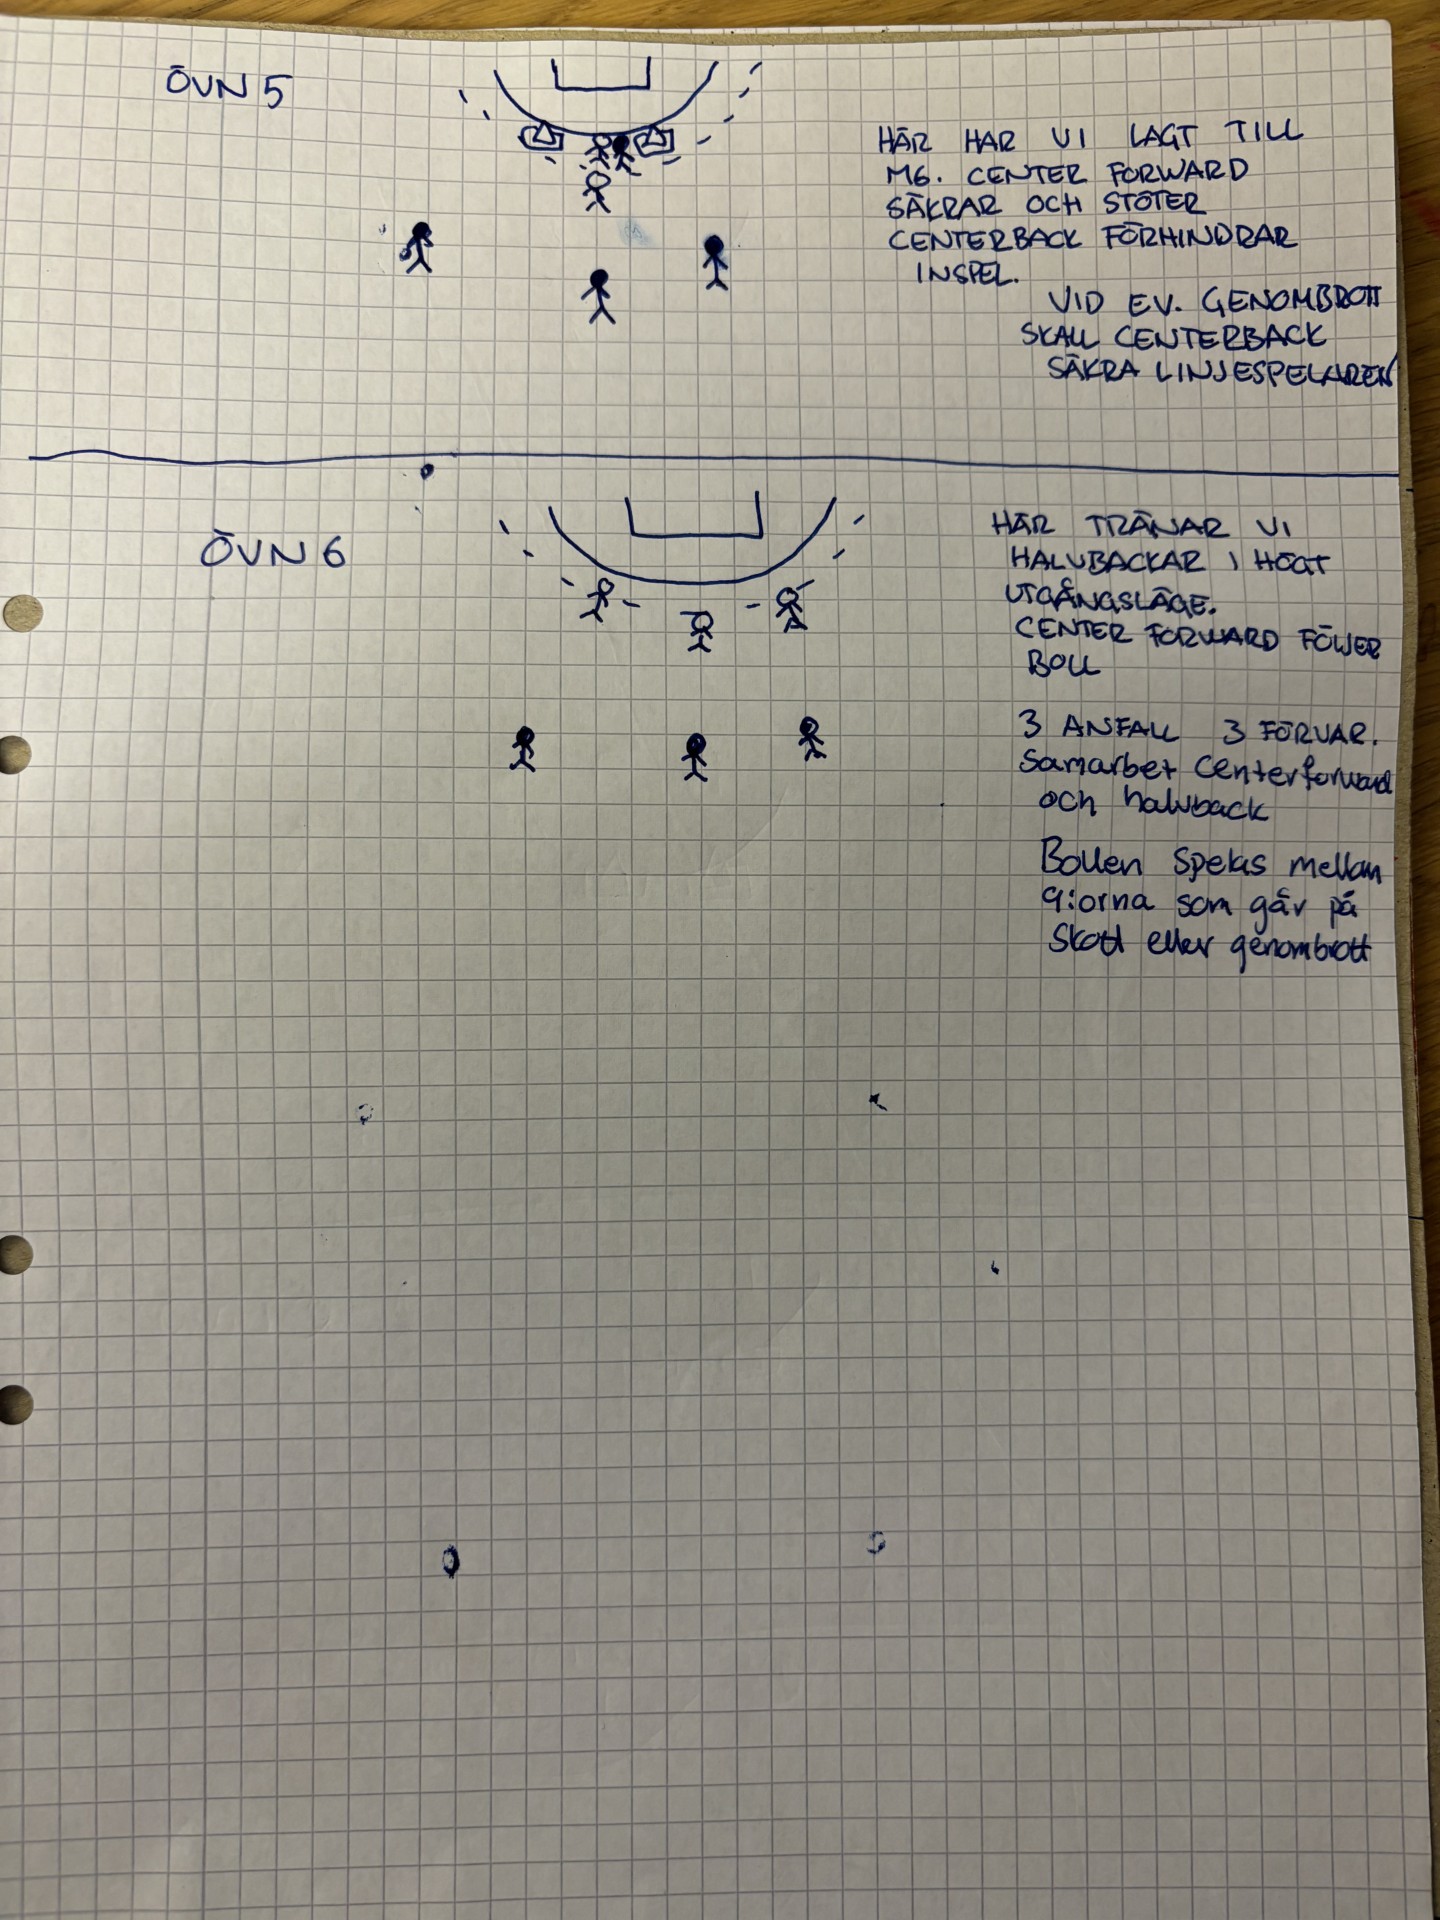 ÖVN 5
HÄR HAR VI LAGT TILL
M6. CENTER FORWARD
SÄKRAR OCH STÖTER
CENTERBACK FÖRHINDRAR
INSPEL.
VID EV. GENOMBROTT
SKALL CENTERBACK
SÄKRA LINJESPELAREN
ÖVN 6
HÄR TRÄNAR VI
HALVBACKAR I HÖGT
UTGÅNGSLÄGE.
CENTER FORWARD FÖLJER
BOLL
3 ANFALL 3 FÖRVAR.
Samarbet Centerforward
och halvback
Bollen spelas mellan
9:orna som går på
Skott eller genombrott